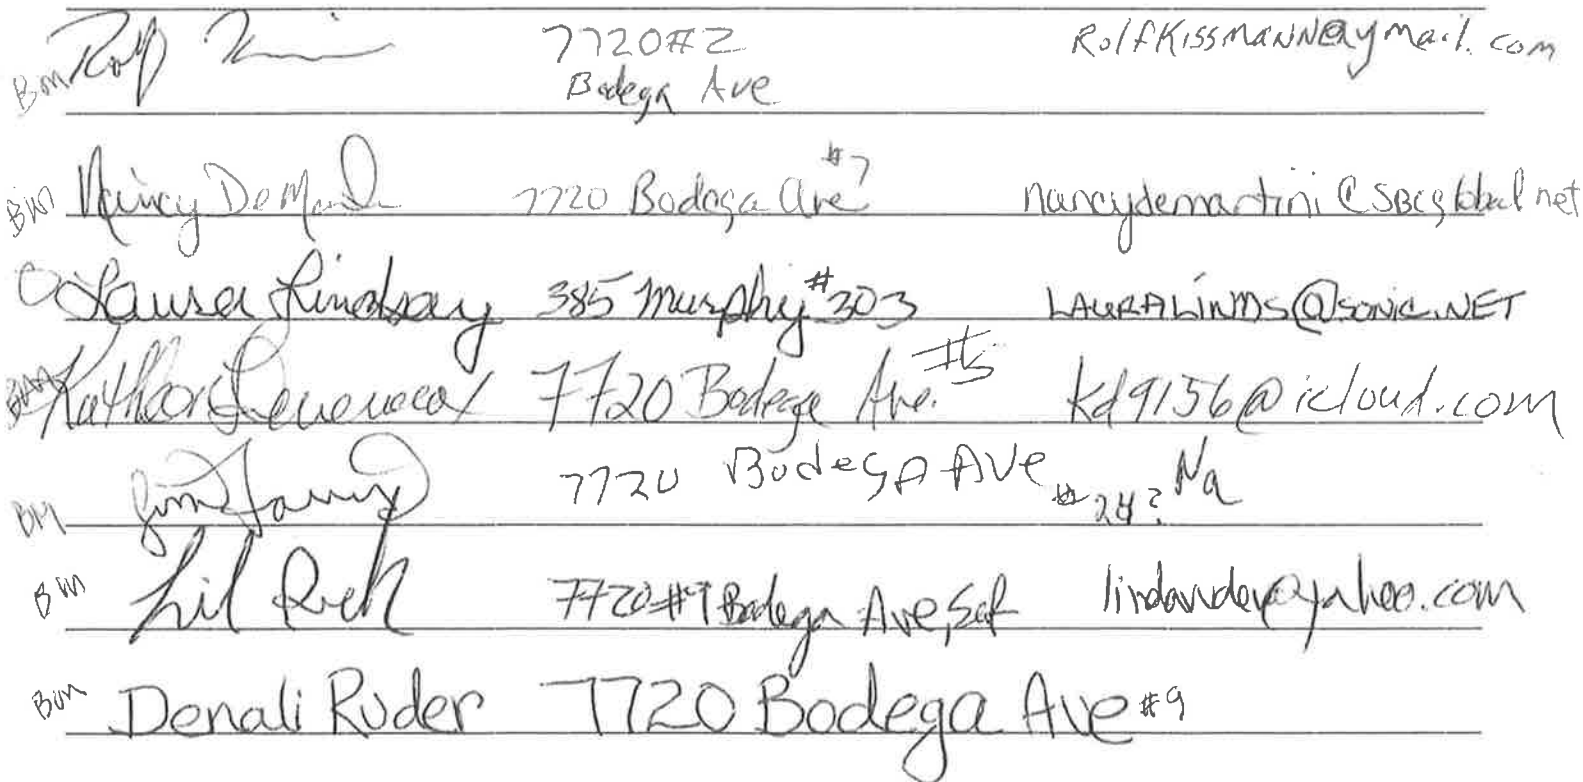 BM Rolf 7720 #2 RolfKissmann@ymail.com
Bodega Ave
BM Nancy DeMa 7720 Bodega Ave #7 nancydemartini@sbcglobal.net
O Laura Lindsay 385 Murphy #303 LAURALINDS@SONIC.NET
BM 7720 Bodega Ave. #5 kd9156@icloud.com
BM Jim 7720 Bodega Ave #24? Na
BM 7720 #9 Bodega Ave, Seb @yahoo.com
BM Denali Ruder 7720 Bodega Ave #9